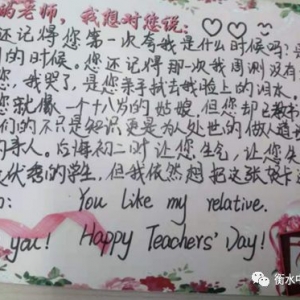 的老师，我想对您说：
还记得您第一次夸我是什么时候吗？
的时候。您还记得那一次我周测没有
您，我哭了，是您亲手拭去我脸上的泪水。
您就像一个十八岁的姑娘，但您却已教
们的不只是知识更是为人处世的做人道
的亲人。后悔初二时让您生气，让您失
优秀的学生，但我依然想把这张贺卡
You Like my relative.
you! Happy Teachers' Day!
衡水中